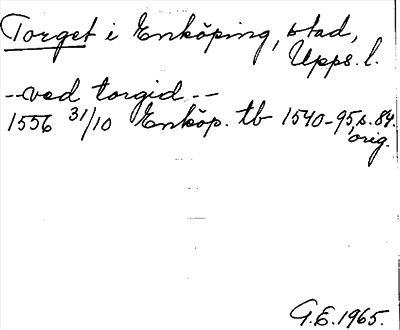 Torget i Enköping, stad,
Upps. l.
-- ved torgid --
1556 31/10 Enköp. tb 1540-95, s. 84.
orig.
G.E. 1965.